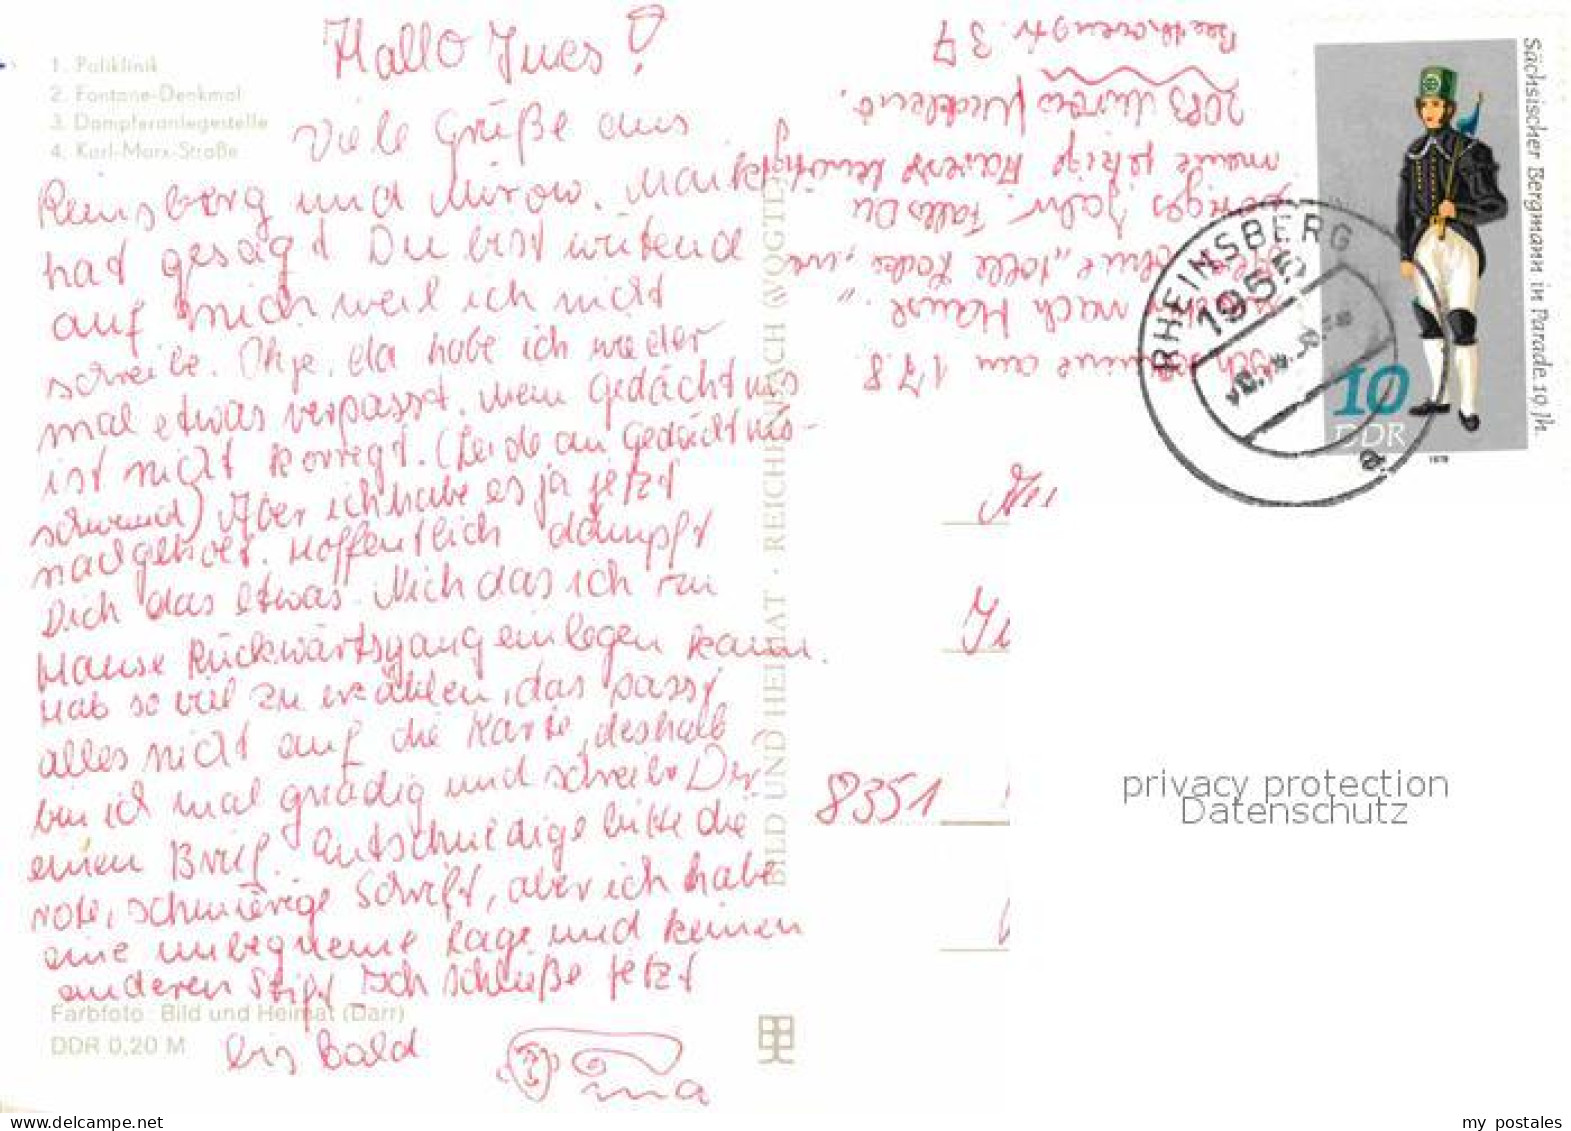 Hallo Ines!
1. Poliklinik
2. Fontane-Denkmal
3. Dampferanlegestelle
4. Karl-Marx-Straße
Viele Grüße aus
Reinsberg und Mirow. Maik
hat gesagt Du bist wütend
auf mich weil ich nicht
schreibe. Ohje, da habe ich wieder
mal etwas verpasst. Mein Gedächtnis
ist nicht korregt. (Leide an Gedächtnis-
schwund) Aber ich habe es ja jetzt
nachgeholt. Hoffentlich dämpft
Dich das etwas. Nich das ich zu
Hause Rückwärtsgang einlegen kann.
Hab so viel zu erzählen, das passt
alles nicht auf die Karte, deshalb
bin ich mal gnädig und schreibe Dir
einen Brief. Entschuldige bitte die
rote, schmierige Schrift, aber ich habe
eine unbequeme Lage und keinen
anderen Stift. Ich schließe jetzt
Farbfoto: Bild und Heimat (Darr)
DDR 0,20 M
bis Bald
BILD UND HEIMAT · REICHENBACH (VOGTL
Ich komme am 17.8.
nach Hause.
ohne „tolle Locke“, wie
voriges Jahr. Falls Du
meine jetzige Adresse benötigst
2083 Mirow Mecklenb.
Beethovenstr. 37
8351
Sächsischer Bergmann in Parade. 19. Jh.
10
DDR
1978
RHEINSBERG
1955
a
privacy protection
Datenschutz
my_postales